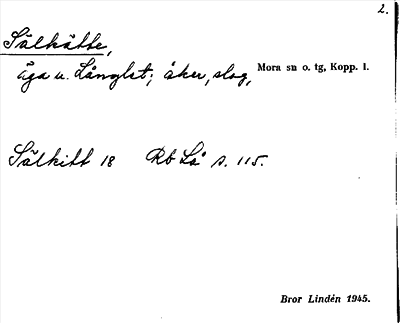 2.
Sälkätte,
äga u. Långlet; åker, slog, Mora sn o. tg, Kopp. l.
Sälkitt 18 Rb Lå s. 115.
Bror Lindén 1945.